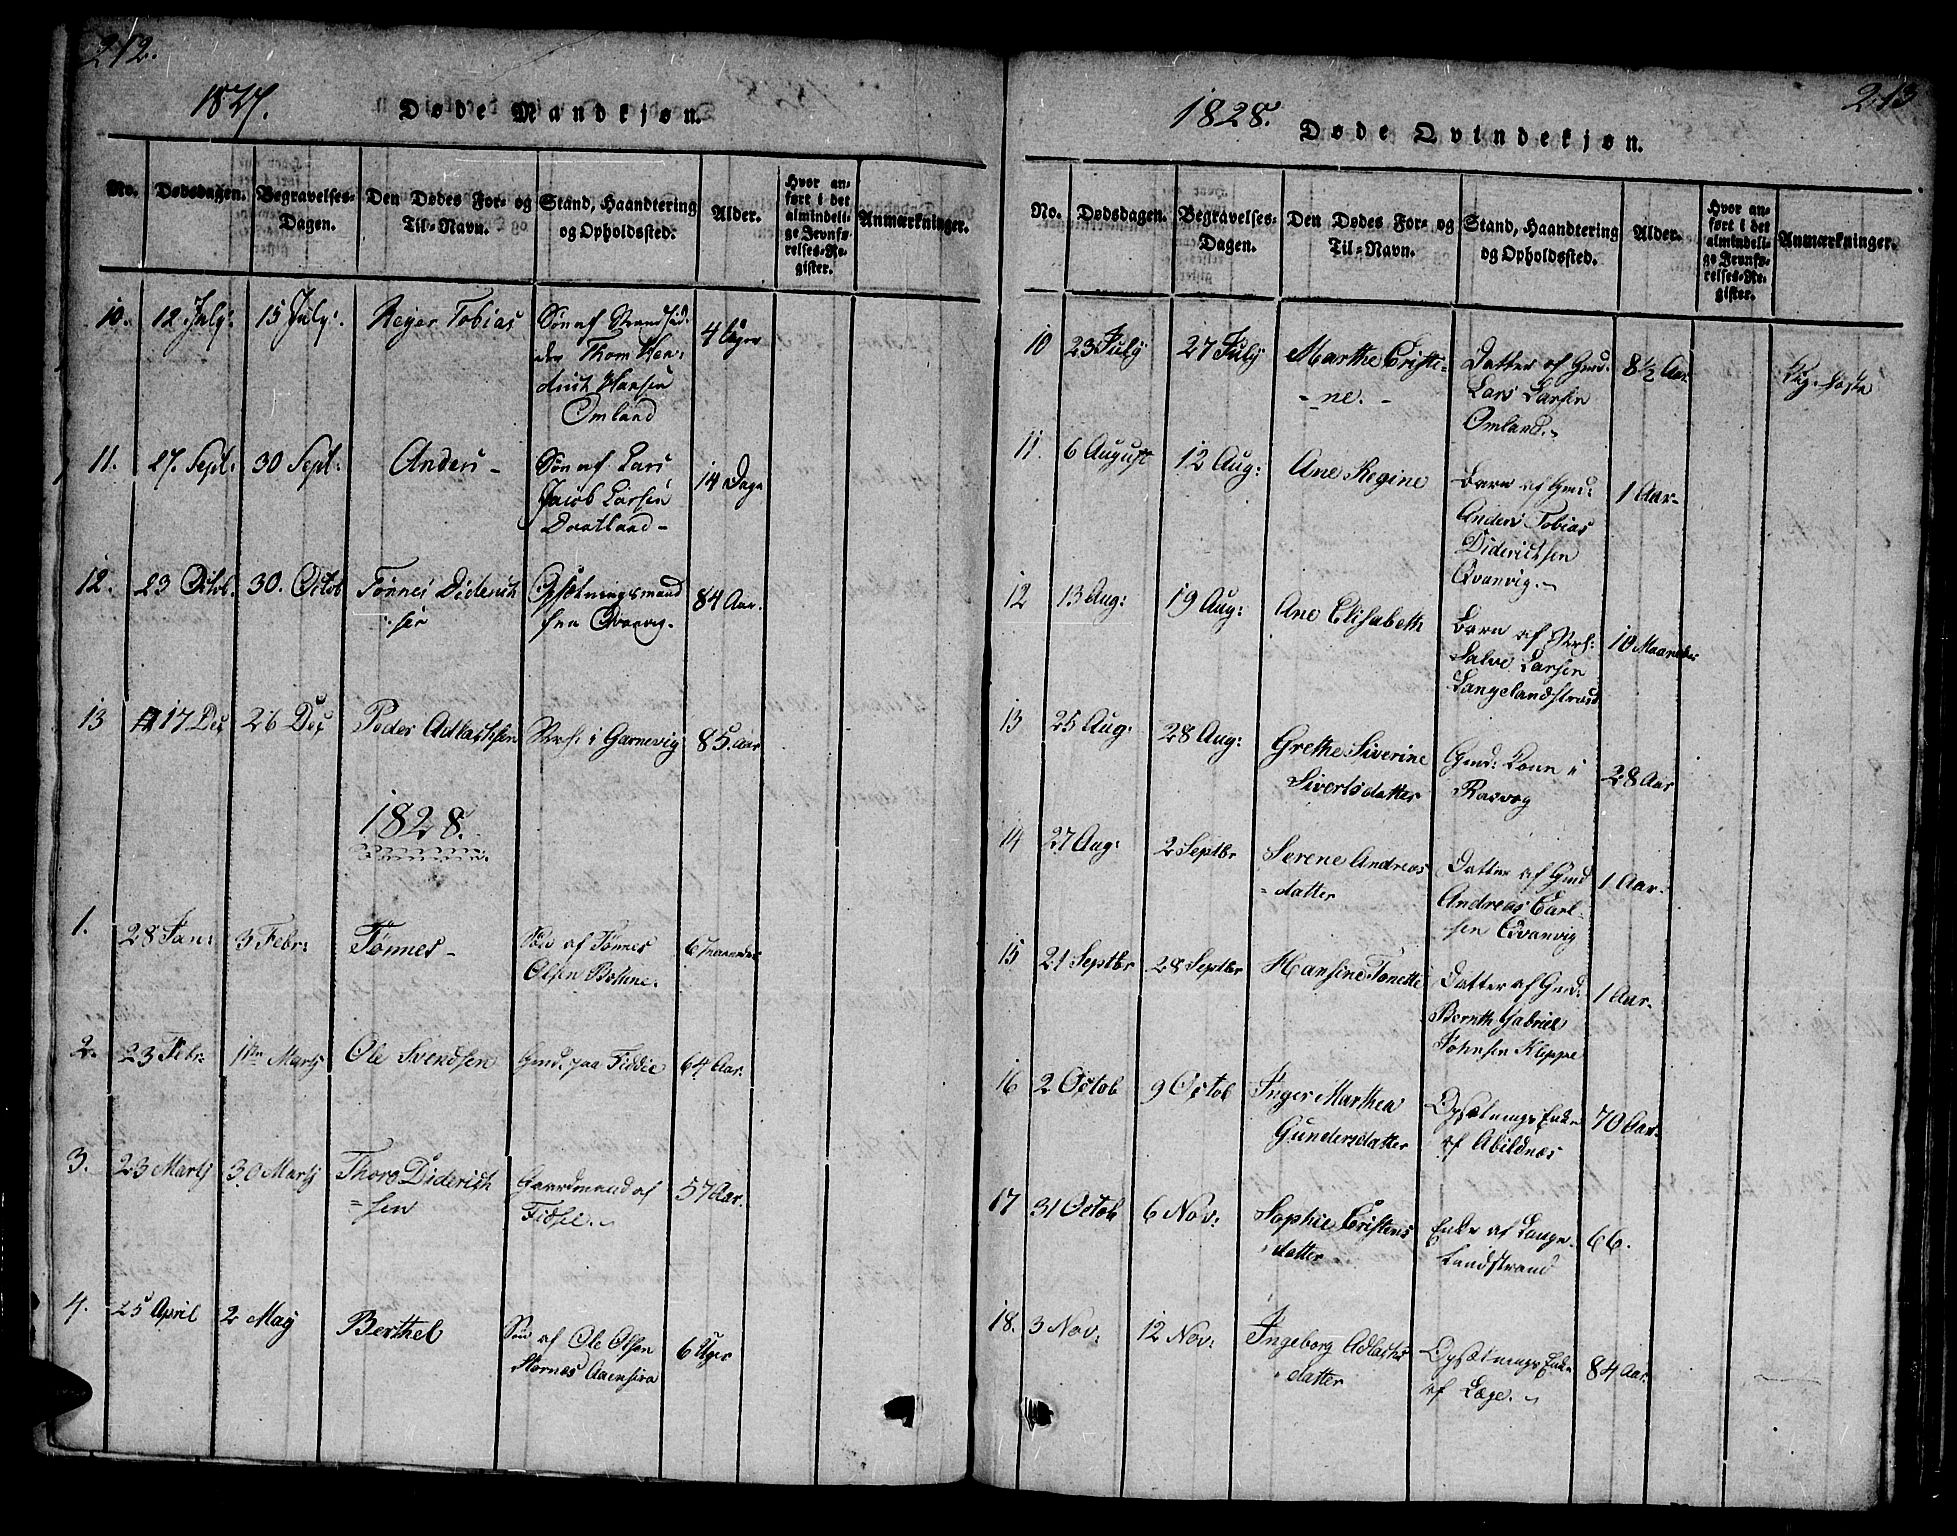 212.
1827. Døde Mandkjøn.
No. Dødsdagen. Begravelses-Dagen. Den Dødes For- og Til-Navn. Stand, Haandtering og Opholdssted. Alder. Hvor anført i det almindelige Jevnførelses-Register. Anmærkninger.
10. 12 July: 15 July: Reyer Tobias Søn af Strandsid-
der Thom Hen-
drich Hansen
Omland 4 Uger
11. 27. Sept: 30 Sept: Anders - Søn af Lars
Jacob Larsen
Daatland - 14 Dage
12. 23 Octob. 30. Octob Tønnes Diderich
sen Opsætningsmand
fra Qvanvig. 84 Aar.
13 17 Dec 26 Dec Peder Adlachsen Strs: i Garnevig 85 Aar
1828.
1. 28 Jan: 3 Febr: Tønnes - Søn af Tønnes
Olsen Bøhne. 6 maaneder
2. 23 Febr. 1ste Marts Ole Svendsen Gmd. paa Fiddie 64 Aar.
3. 23 Marts 30 Marts Thore Diderich
=sen Gaardmand af
Fidsie. 57 Aar.
4. 25 April 2 May Berthel Søn af Ole Olsen
Stornes Aaensira 6 Uger
213
1828. Døde Qvindekjøn.
No. Dødsdagen. Begravelses-Dagen. Den Dødes For- og Til-Navn. Stand, Haandtering og Opholdssted. Alder. Hvor anført i det almindelige Jevnførelses-Register. Anmærkninger.
10 23 July 27 July Marthe Cristi-
-ne. - Datter af Gmd:
Lars Larsen
Omland. 8½ Aar.
11. 6 August 12 Aug: Ane Regine Barn af Gmd:
Anders Tobias
Diderichsen
Qvanvig. 1 Aar-
12 13 Aug: 19 Aug: Ane Elisabeth Barn af Strs:
Salve Larsen
Langelandstrand 10 Maaneder
13 25 Aug: 28 Aug: Grethe Siverine
Sivertsdatter Gmd: Kone i
Rasvog 28 Aar
14 27 Aug: 2 Septbr Serene Andreas
=datter Datter af Gmd
Andreas Carl-
sen Qvanvig 1 Aar.
15 21 Septbr 28 Septbr Hansine Tonette Datter af Gmd:
Bernth Gabriel
Johnsen Kleppe 1 Aar.
16 2 Octob 9 Octob Inger Marthea
Gundersdatter Opsætnings Enke
af Abildnæs 70 Aar.
17 31 Octob 6 Nov: Sophie Cristens
datter Enke af Lange-
landstrand 66.
18. 3 Nov: 12 Nov: Ingeborg Adlachs
datter Opsætnings Enke
af Læge. 84 Aar.